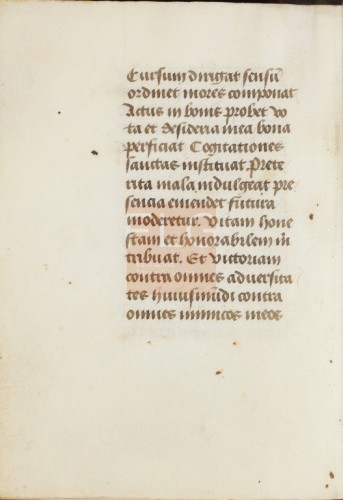 Cursum dirigat sensũ
ordinet mores componat
Actus in bonis probet vo
ta et desideria mea bona
perficiat Cogitationes
sanctas instituat Prete
rita mala indulgeat pre
sencia emendet futura
moderetur. Vitam hone
stam et honorabilem m̃
tribuat. Et victoriam
contra omnes aduersita
tes huiusmũdi contra
omnes inimicos meos